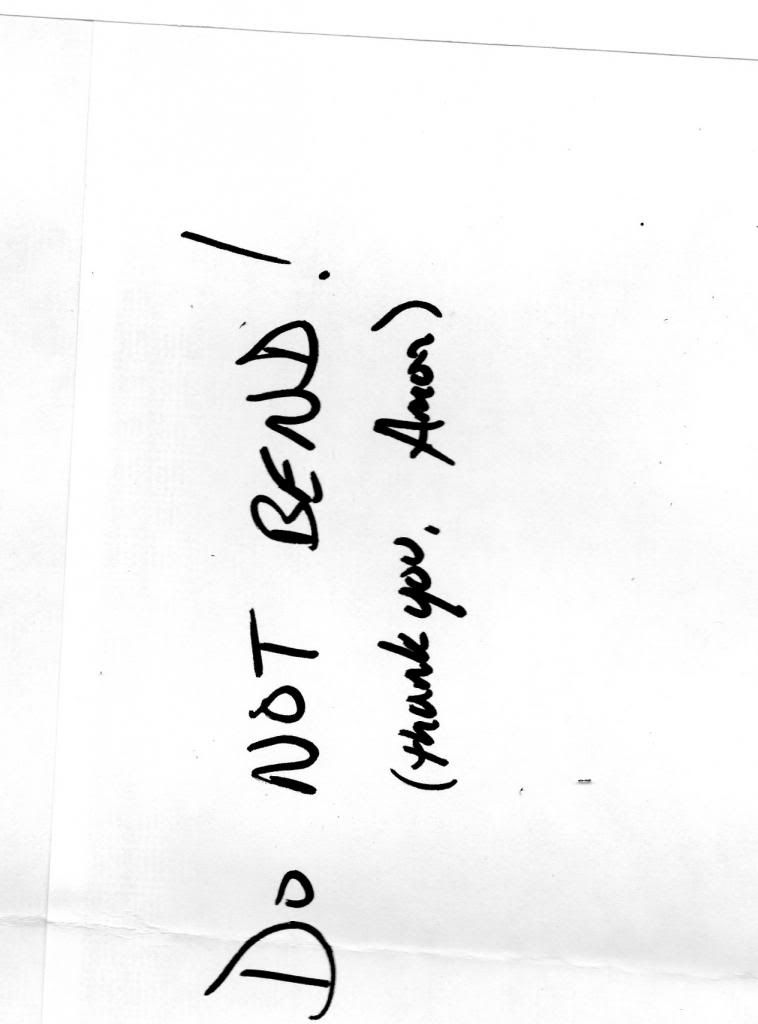 Do NOT BEND!
(thank you, Amon)